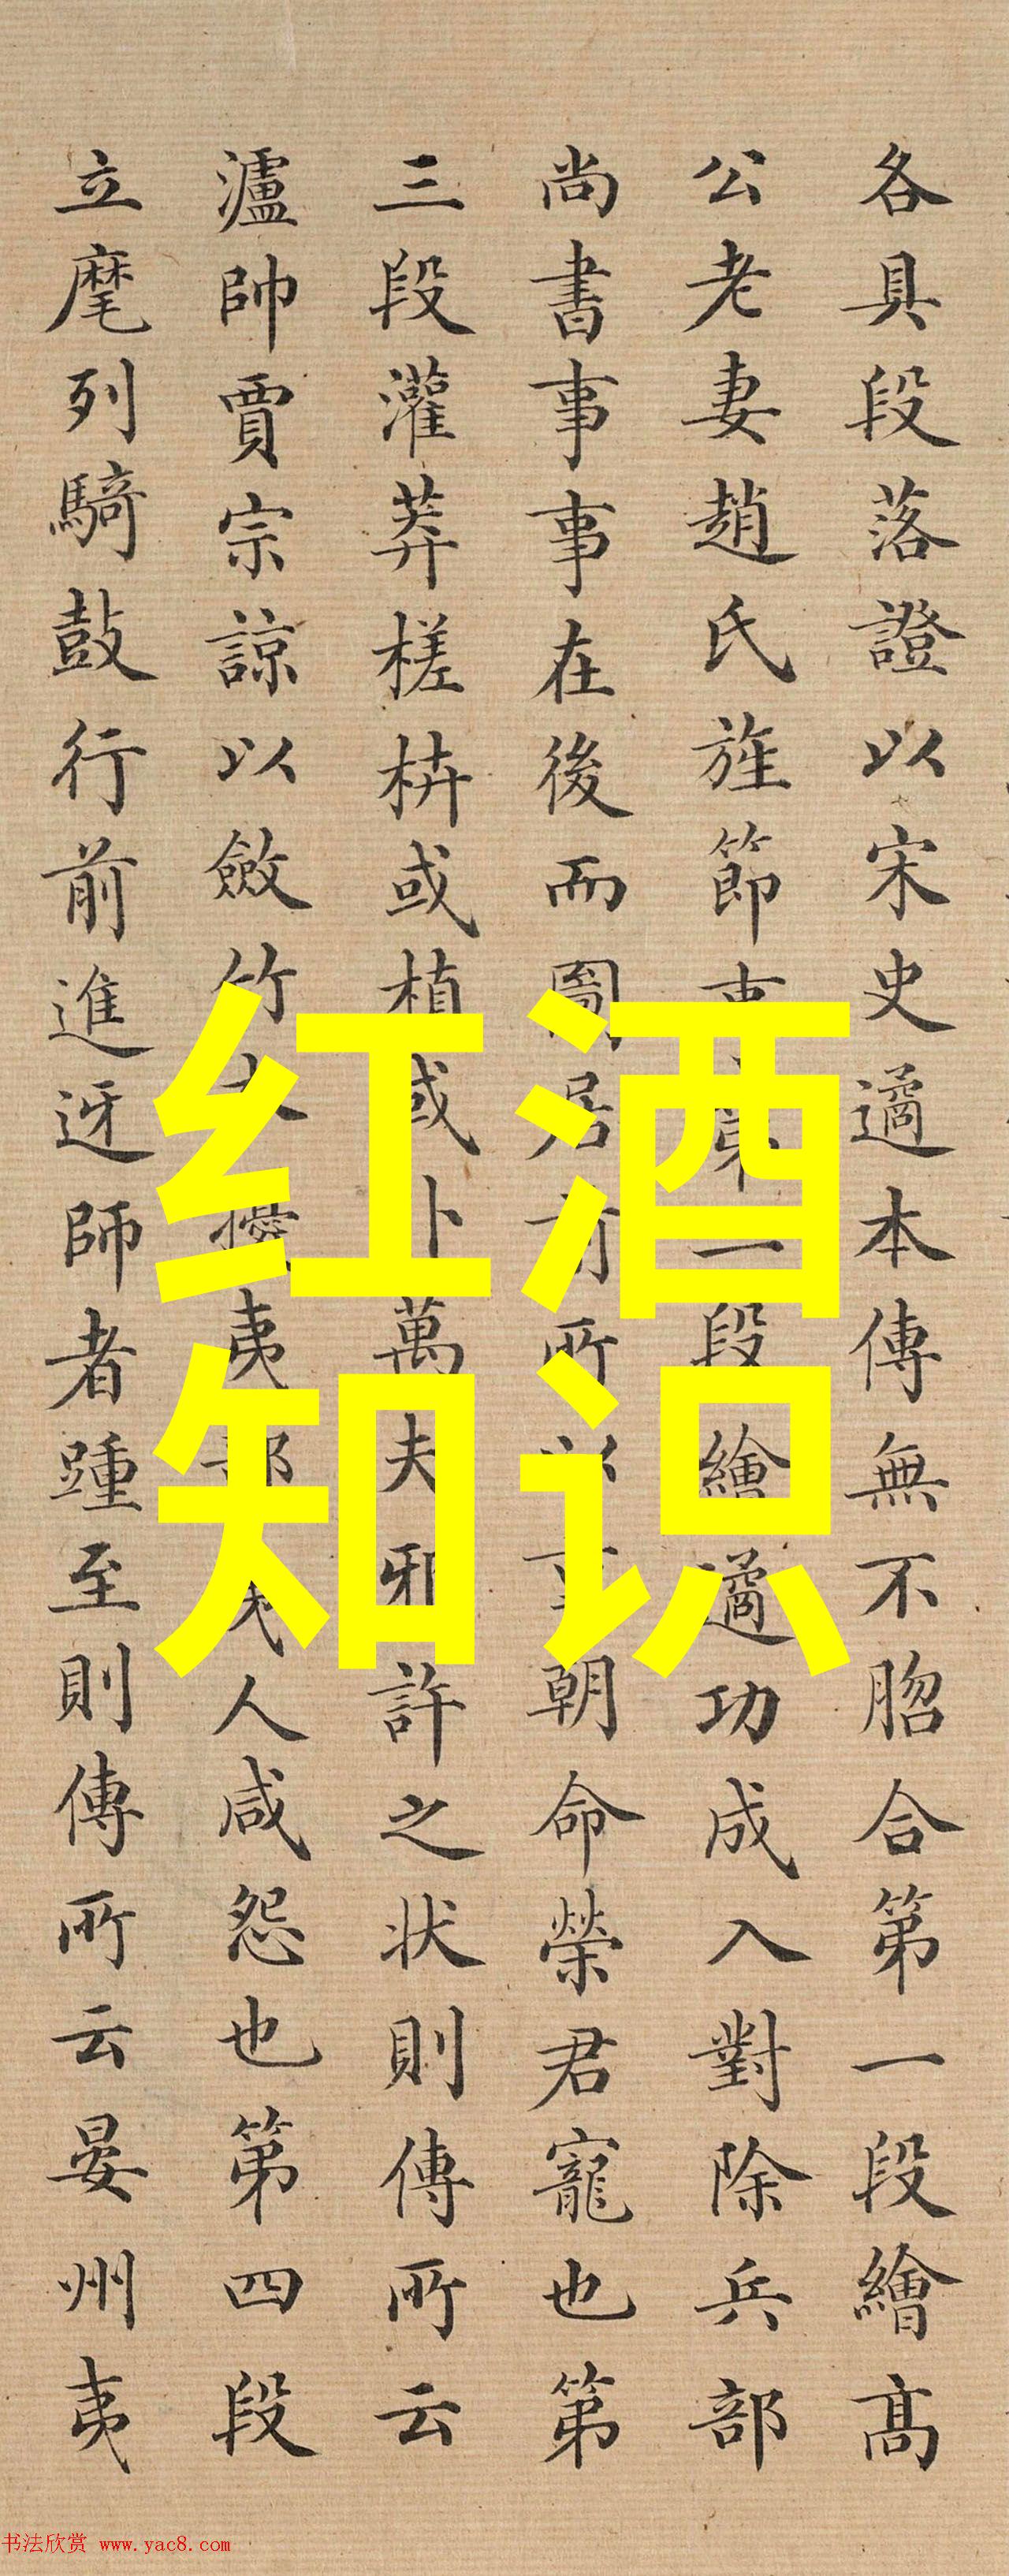 各具段落證以宋史遹本傳無不脗合第一段繪高
公老妻趙氏旌節
一段繪遹功成入對除兵部
尚書事事在後而圖居前所以重朝命榮君寵也第
三段灌莽槎枿或植或仆萬夫邪許之状則傳所云
瀘帥賈宗諒以斂竹木擾夷部夷人咸怨也第四段
立麾列騎鼓行前進迓師者踵至則傳所云晏州夷
红酒
知识
书法欣赏 www.yac8.com